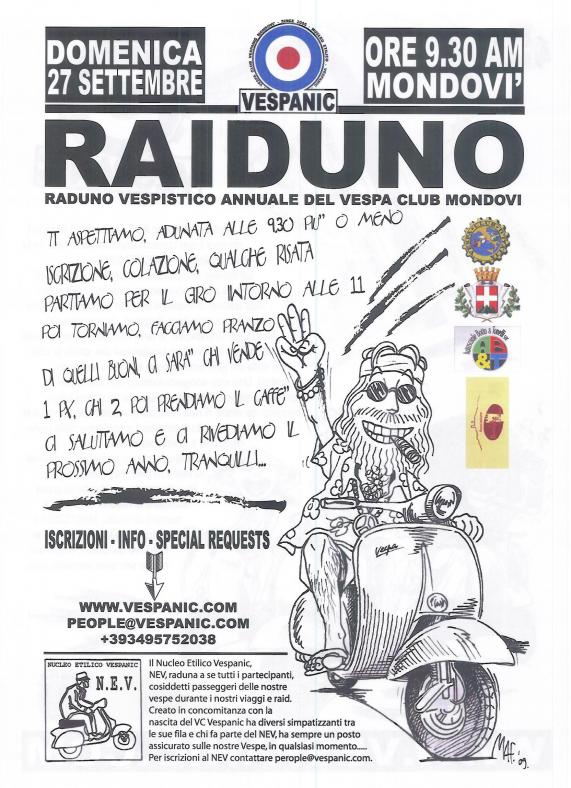 DOMENICA
27 SETTEMBRE
VESPANIC
ORE 9.30 AM
MONDOVI'
RAIDUNO
RADUNO VESPISTICO ANNUALE DEL VESPA CLUB MONDOVI
TI ASPETTIAMO, ADUNATA ALLE 9.30 PIU" O MENO
ISCRIZIONE, COLAZIONE, QUALCHE RISATA
PARTIAMO PER IL GIRO INTORNO ALLE 11
POI TORNIAMO, FACCIAMO PRANZO
DI QUELLI BUONI, CI SARA" CHI VENDE
1 PX, CHI 2, POI PRENDIAMO IL CAFFE"
CI SALUTIAMO E CI RIVEDIAMO IL
PROSSIMO ANNO, TRANQUILLI...
AB
&T
Vespa
ISCRIZIONI - INFO - SPECIAL REQUESTS
WWW.VESPANIC.COM
PEOPLE@VESPANIC.COM
+393495752038
NUCLEO ETILICO VESPANIC
N.E.V.
Il Nucleo Etilico Vespanic,
NEV, raduna a se tutti i partecipanti,
cosiddetti passeggeri delle nostre
vespe durante i nostri viaggi e raid.
Creato in concomitanza con la
nascita del VC Vespanic ha diversi simpatizzanti tra
le sue fila e chi fa parte del NEV, ha sempre un posto
assicurato sulle nostre Vespe, in qualsiasi momento.....
Per iscrizioni al NEV contattare perople@vespanic.com.
MAF. '09.